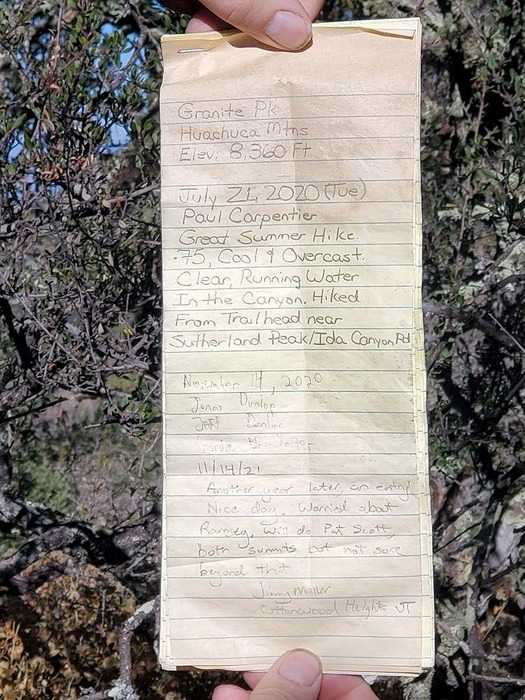 Granite Pk
Huachuca Mtns
Elev: 8,360 Ft
July 21, 2020 (Tue)
Paul Carpentier
Great Summer Hike.
75, Cool & Overcast.
Clear, Running Water
In the Canyon. Hiked
From Trailhead near
Sutherland Peak/Ida Canyon Rd
November 14, 2020
Jonas Dunlop
Jeff
11/14/21
Another year later, an entry!
Nice day. Worried about
Ramsey, will do Pat Scott,
both summits, but not sure
beyond that
Jimmy
Cottonwood Heights UT